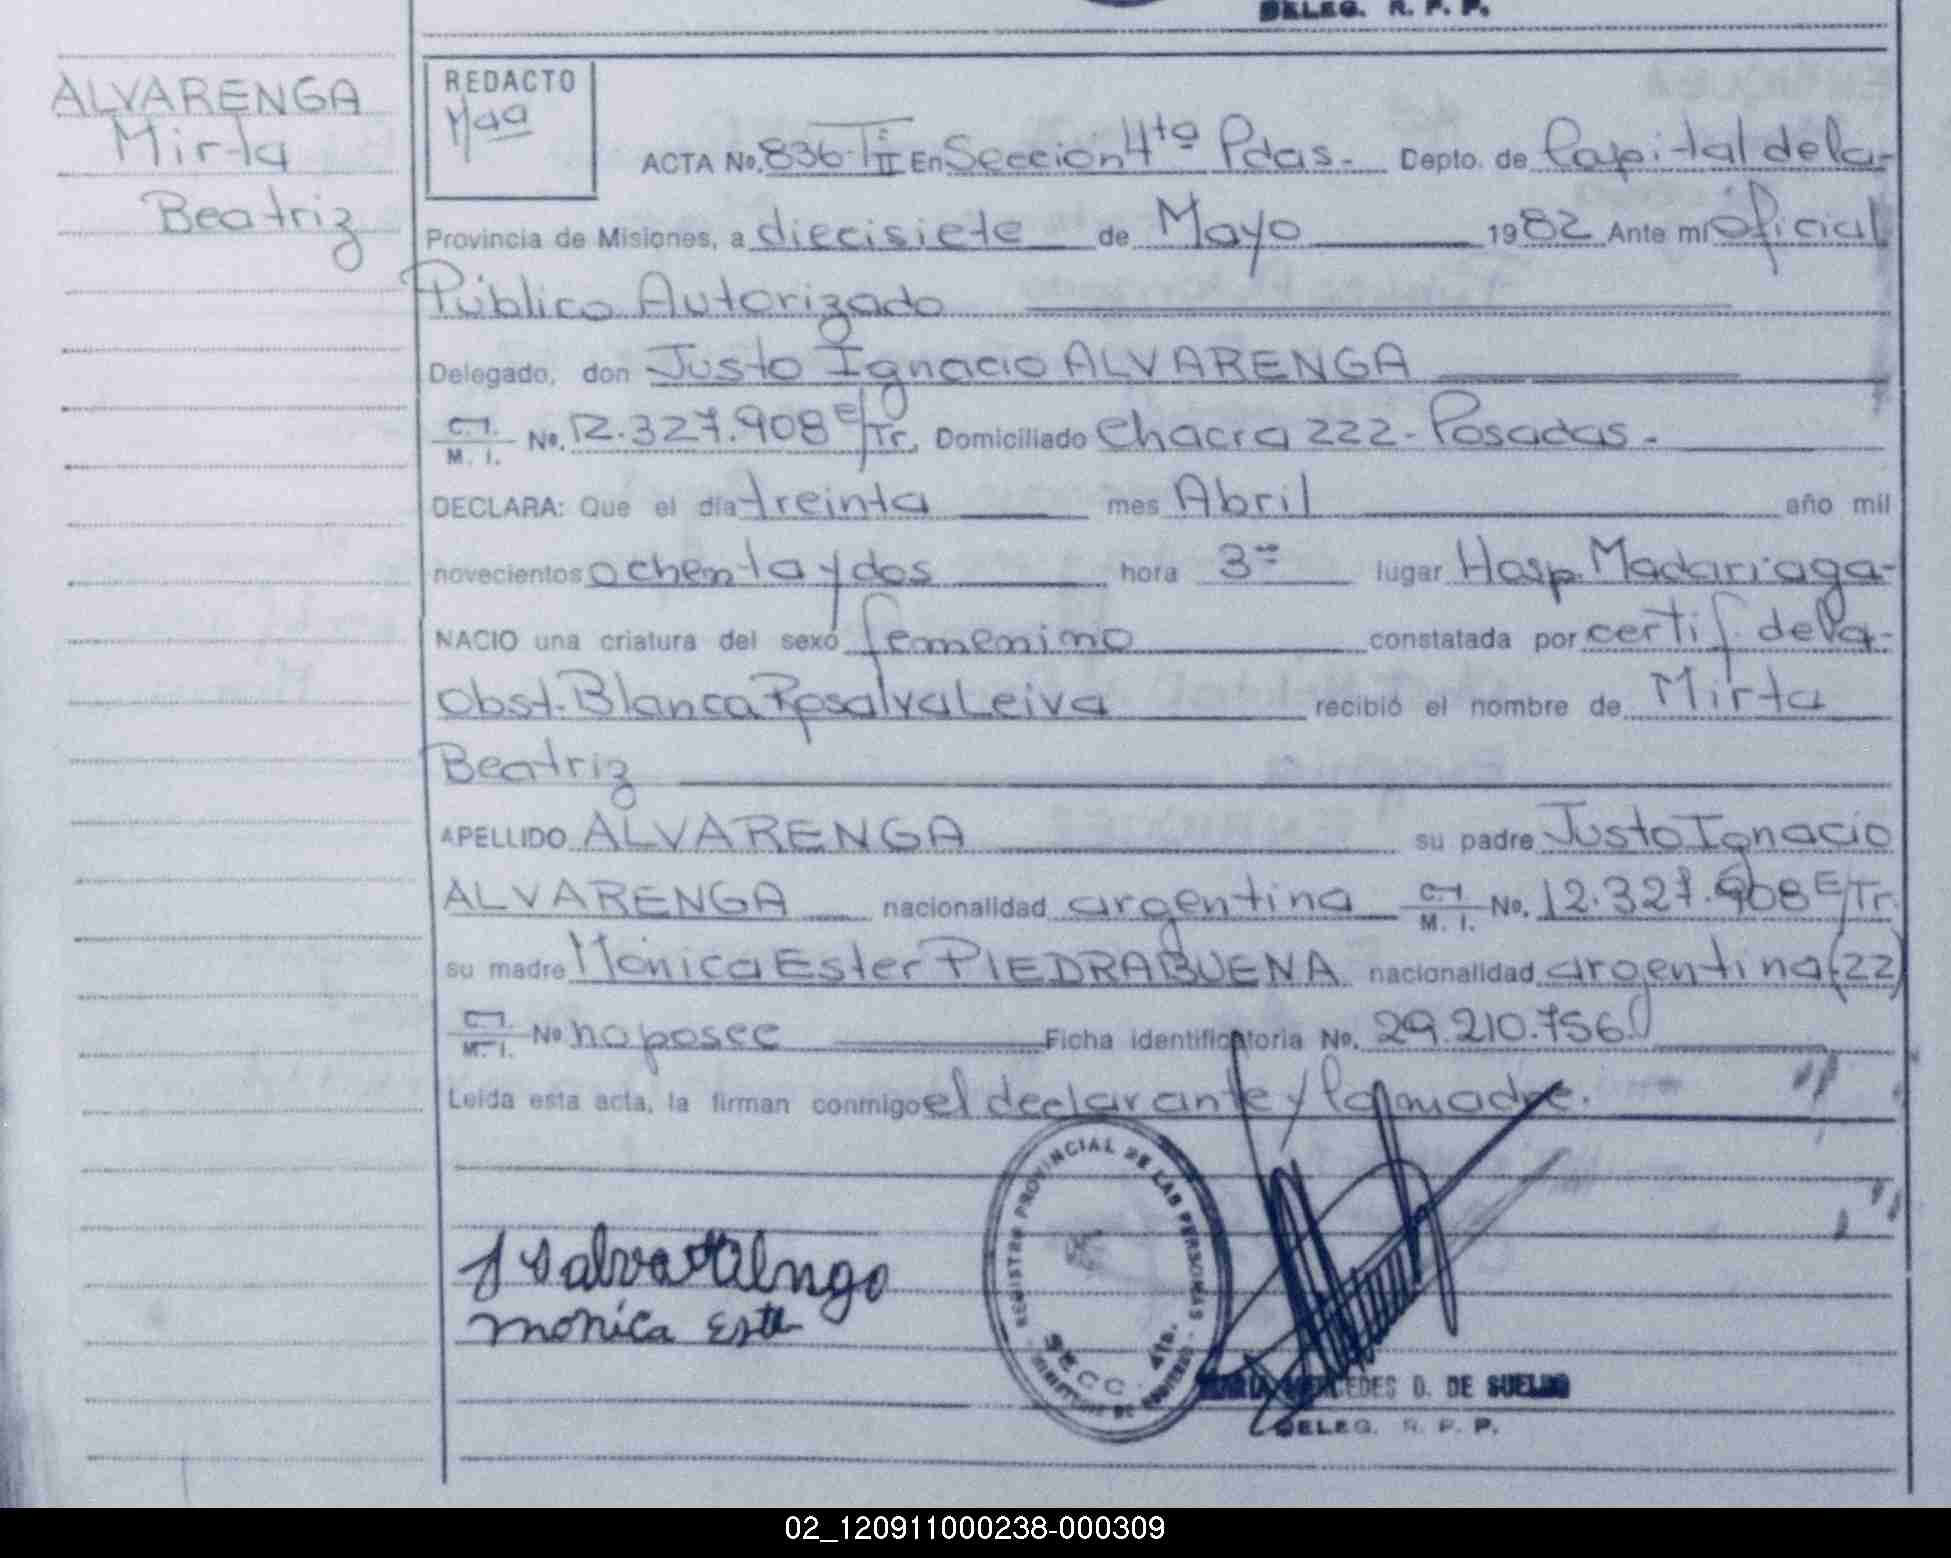 DELEG. R. P. P.
ALVARENGA
Mirta
Beatriz
REDACTO
ACTA No. 836-T II En Sección 4ta Pdas.- Depto. de Capital de la-
Provincia de Misiones, a diecisiete de Mayo 1982 Ante mí oficial
Público Autorizado
Delegado, don Justo Ignacio ALVARENGA
C.I. M. I. No. 12.327.908 E/Tr. Domiciliado Chacra 222- Posadas.-
DECLARA: Que el día treinta mes Abril año mil
novecientos ochenta y dos hora 3 lugar Hosp. Madariaga-
NACIO una criatura del sexo femenino constatada por certif. de la-
obst. Blanca Rosalva Leiva recibió el nombre de Mirta
Beatriz
APELLIDO ALVARENGA su padre Justo Ignacio
ALVARENGA nacionalidad argentina C.I. M. I. No. 12.327.908 E/Tr.
su madre Mónica Ester PIEDRABUENA nacionalidad argentina (22)
C.I. M. I. No no posee Ficha identificatoria No. 29.210.756
Leída esta acta, la firman conmigo el declarante y la madre.
REGISTRO PROVINCIAL DE LAS PERSONAS
SECC. 4ta.
monica Este
MARIA MERCEDES D. DE SUELDO
DELEG. R. P. P.
02_120911000238-000309